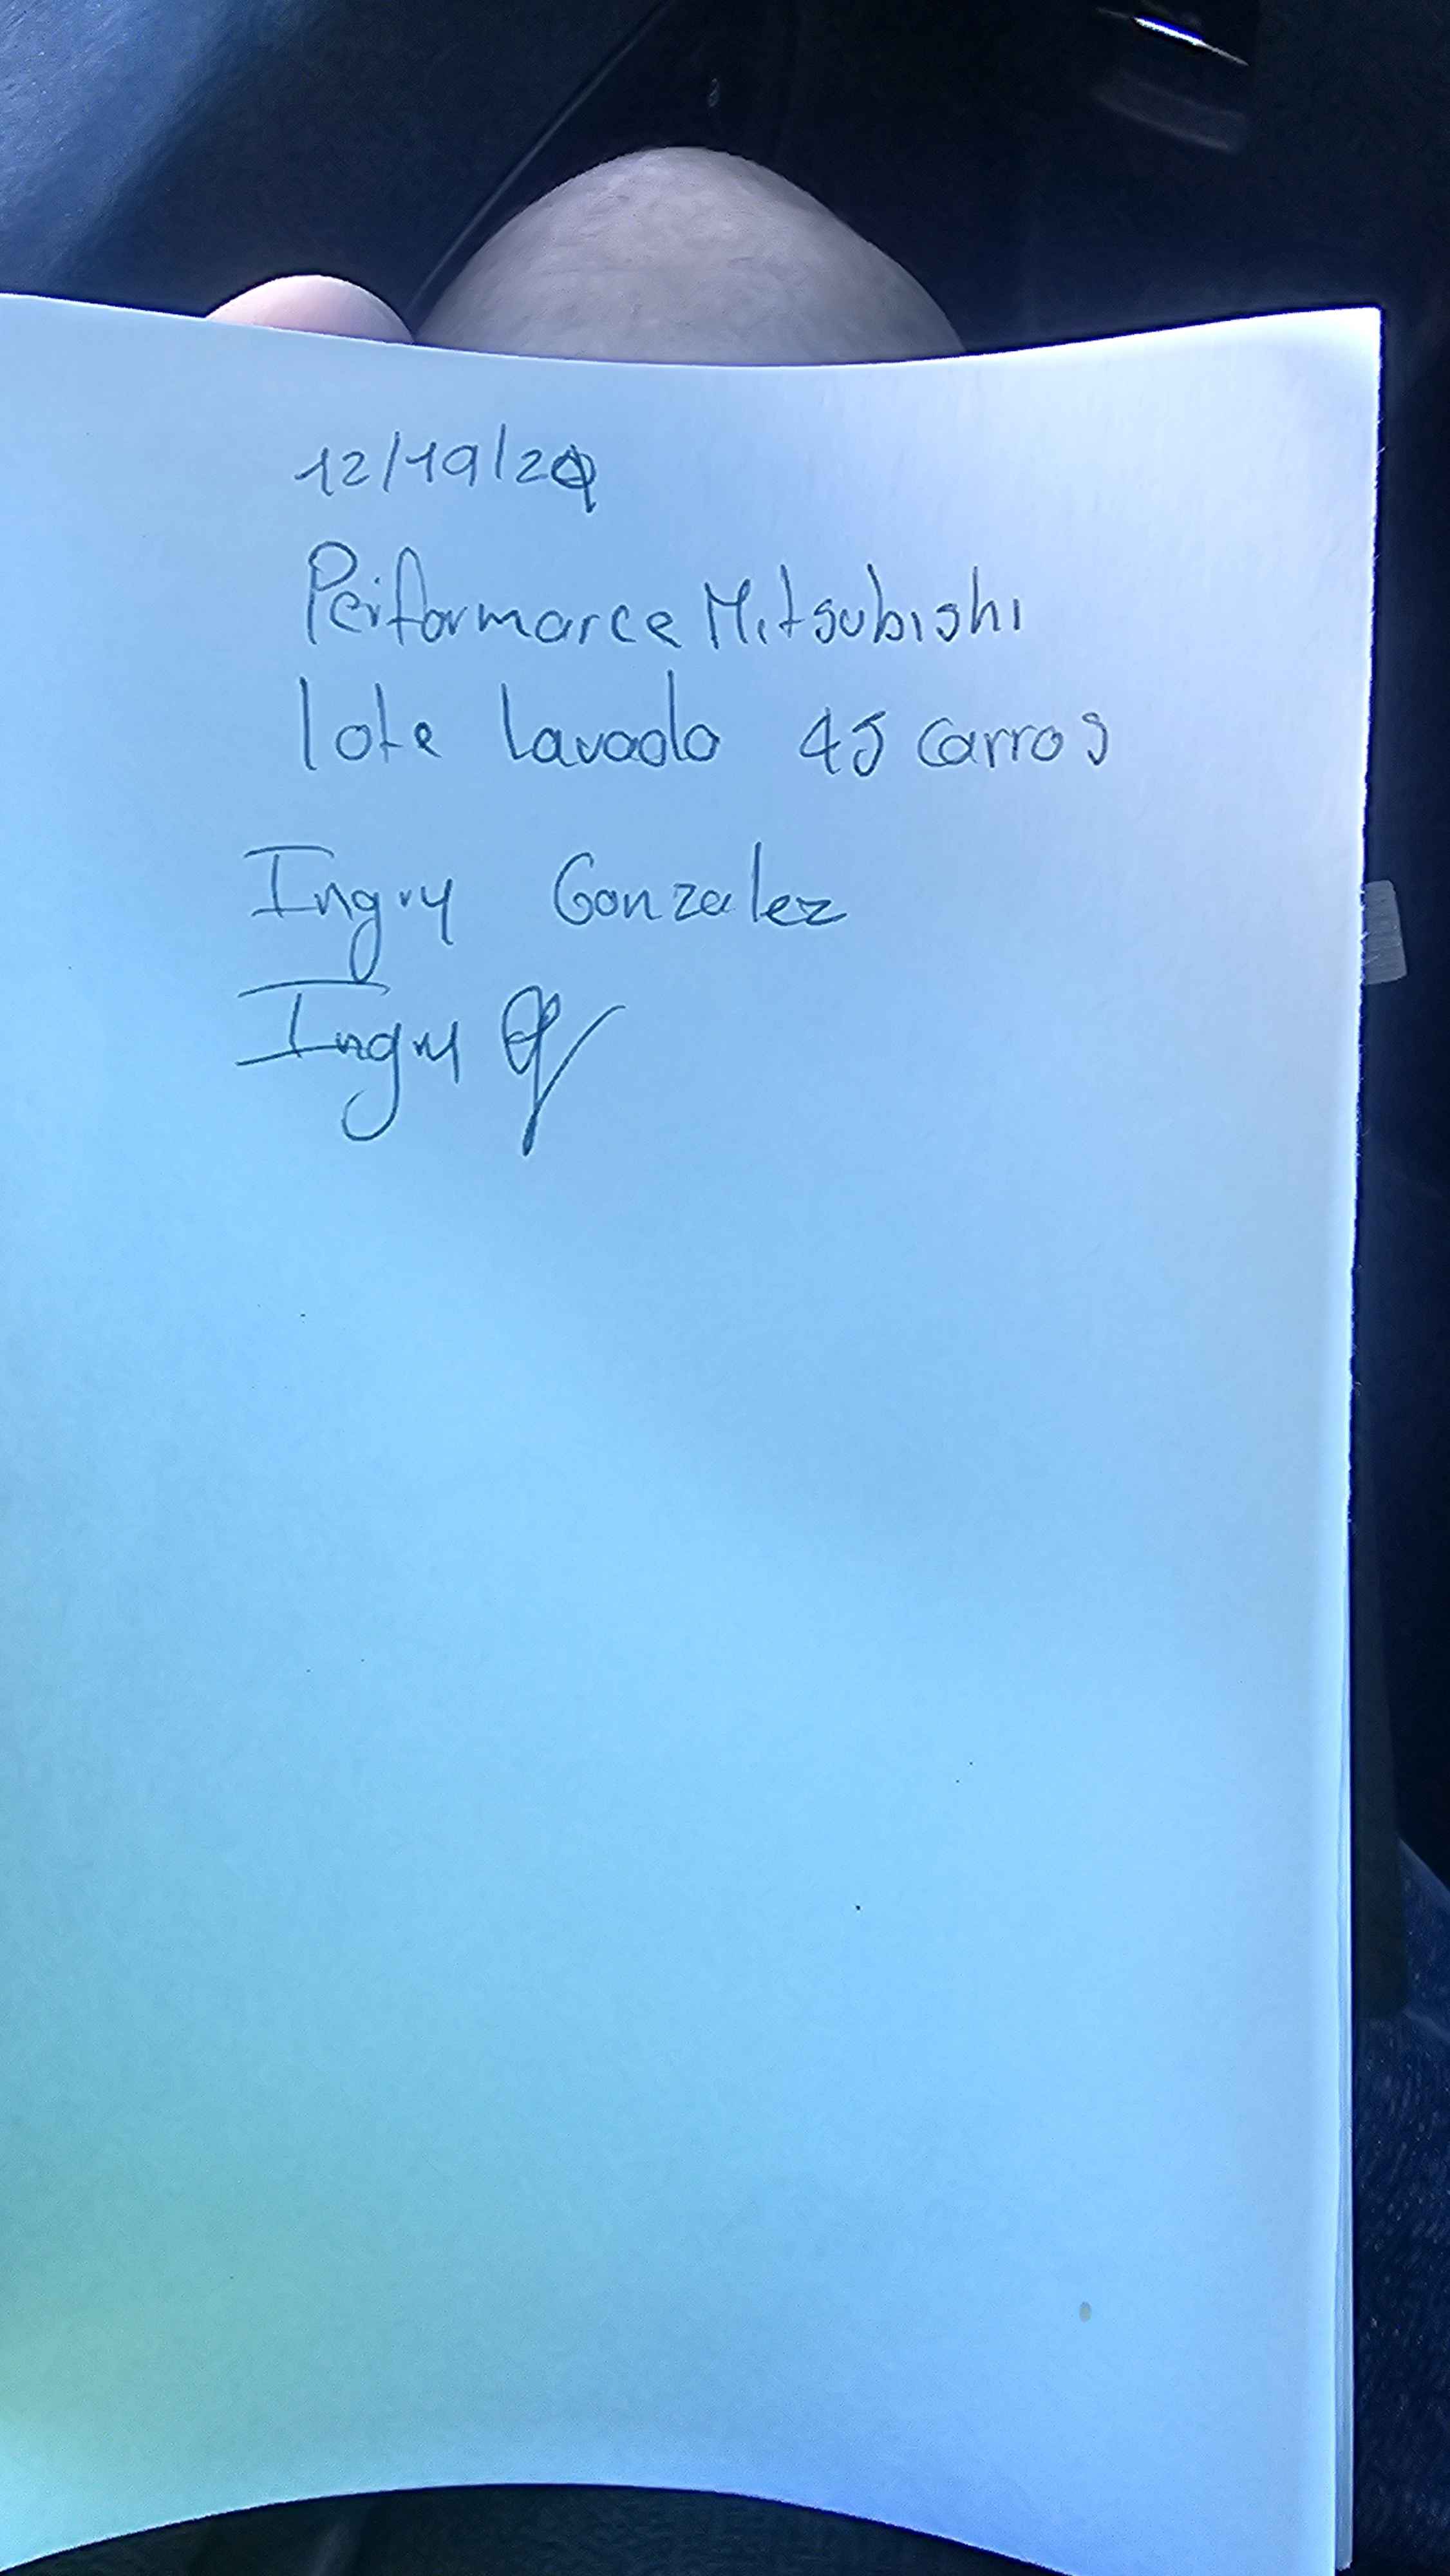 12/19/20
Performance Mitsubishi
lote lavado 45 carros
Ingry Gonzalez
Ingry G